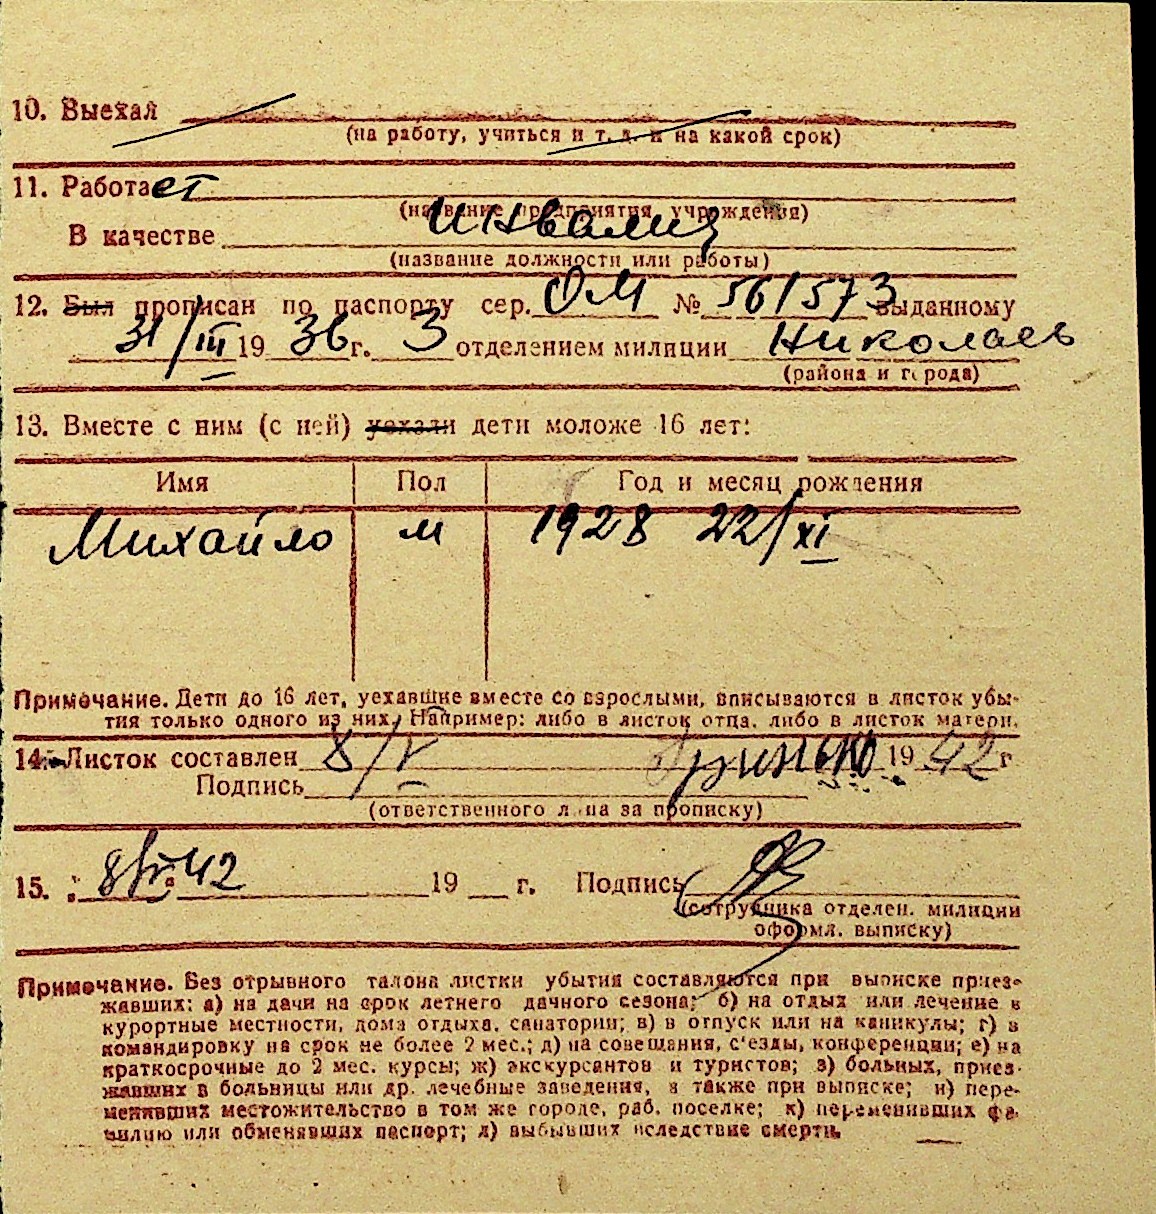 10. Выехал
(на работу, учиться и т. д. и на какой срок)
11. Работает
(название предприятия, учреждения)
В качестве инвалид
(название должности или работы)
12. Был прописан по паспорту сер. ОМ № 561573 выданному
31/III 1936 г. 3 отделением милиции Николаев
(района и города)
13. Вместе с ним (с ней) уехали дети моложе 16 лет:
Имя Пол Год и месяц рождения
Михайло м 1928 22/XI
Примечание. Дети до 16 лет, уехавшие вместе со взрослыми, вписываются в листок убы-
тия только одного из них. Например: либо в листок отца, либо в листок матери.
14. Листок составлен 8/V 1942 г
Подпись Гринько
(ответственного лица за прописку)
15. 8/V 42 19 г. Подпись
(сотрудника отделен. милиции
оформл. выписку)
Примечание. Без отрывного талона листки убытия составляются при выписке приез-
жавших: а) на дачи на срок летнего дачного сезона; б) на отдых или лечение в
курортные местности, дома отдыха, санатории; в) в отпуск или на каникулы; г) в
командировку на срок не более 2 мес.; д) на совещания, с'езды, конференции; е) на
краткосрочные до 2 мес. курсы; ж) экскурсантов и туристов; з) больных, приез-
жавших в больницы или др. лечебные заведения, а также при выписке; и) пере-
менивших местожительство в том же городе, раб. поселке; к) переменивших фа-
милию или обменявших паспорт; л) выбывших вследствие смерти.